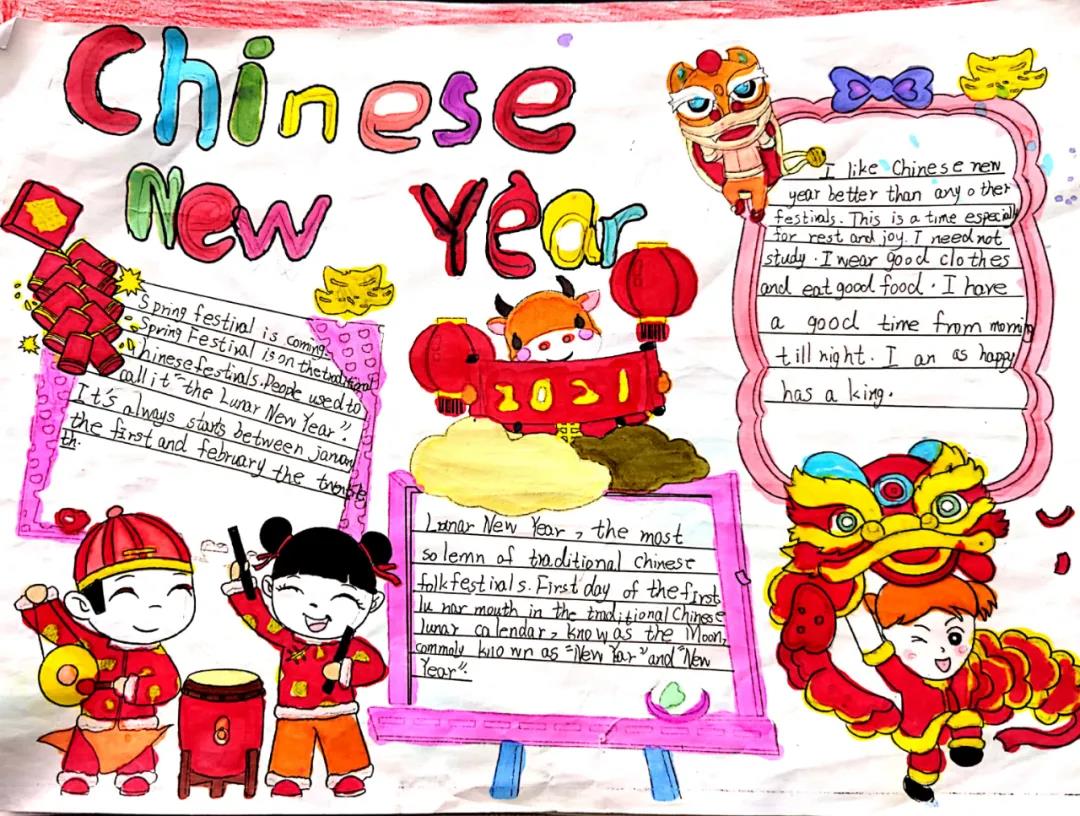 Chinese
New Year
Spring festival is coming.
Spring Festival is on the traditional
Chinese festivals. People used to
call it "the Lunar New Year".
It's always starts between janan
the first and february the
th.
2021
Lunar New Year, the most
solemn of traditional Chinese
folk festivals. First day of the first
lu nar mouth in the traditional Chinese
lunar calendar, know as the Moon,
commoly known as "New Year" and "New
Year".
I like Chinese new
year better than any other
festivals. This is a time especially
for rest and joy. I need not
study. I wear good clothes
and eat good food. I have
a good time from morning
till night. I an as happy
has a king.